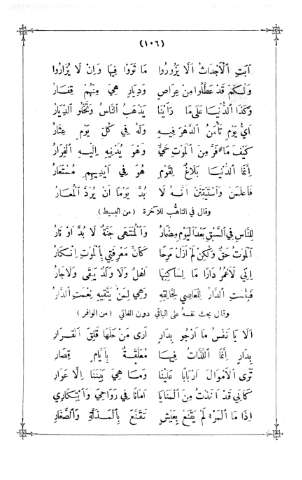 (١٠٦)
أَبَتِ ٱلْأَجْدَاثُ أَلَّا يَزُورُوا مَا ثَوَوْا فِيهَا وَإِنْ لَا يُزَارُوا
وَلَكَمْ قَدْ عَطَّلُوا مِنْ عِرَاصٍ وَدِيَارٍ هِيَ مِنْهُمْ قِفَارُ
وَكَذَا ٱلدُّنْيَا عَلَى مَا رَأَيْنَا يَذْهَبُ ٱلنَّاسُ وَتَخْلُو ٱلدِّيَارُ
أَيَّ يَوْمٍ تَأْمَنُ ٱلدَّهْرَ فِيهِ وَلَهُ فِي كُلِّ يَوْمٍ عِثَارُ
كَيْفَ مَا فَرَّ مِنَ ٱلْمَوْتِ حَيٌّ وَهْوَ يُدْنِيهِ إِلَيْهِ ٱلْفِرَارُ
إِنَّمَا ٱلدُّنْيَا بَلَاغٌ لِقَوْمٍ هُوَ فِي أَيْدِيهِمِ مُسْتَعَارُ
فَٱعْلَمَنْ وَٱسْتَيْقِنَنْ أَنَّهُ لَا بُدَّ يَوْمًا أَنْ يُرَدَّ ٱلْمُعَارُ
وقال في التأهب للآخرة (من البسيط)
لِلنَّاسِ فِي ٱلسَّبْقِ بَعْدَ ٱلْيَوْمِ مِضْمَارُ وَٱلْمُنْتَهَى جَنَّةٌ لَا بُدَّ أَوْ نَارُ
ٱلْمَوْتُ حَقٌّ وَلٰكِنْ لَمْ أَزَلْ مَرِحًا كَأَنَّ مَعْرِفَتِي بِٱلْمَوْتِ إِنْكَارُ
إِنِّي لَأَعْمُرُ دَارًا مَا لِسَاكِنِهَا أَهْلٌ وَلَا وَلَدٌ يَبْقَى وَلَا جَارُ
فَبِئْسَتِ ٱلدَّارُ لِلْعَاصِي لِخَالِقِهِ وَهْيَ لِمَنْ يَتَّقِيهِ نِعْمَتِ ٱلدَّارُ
وقال يحث نفسه على الباقي دون الفاني (من الوافر)
أَلَا يَا نَفْسُ مَا أَرْجُو بِدَارٍ أَرَى مَنْ حَلَّهَا قَلِقَ ٱلْقَرَارِ
بِدَارٍ إِنَّمَا ٱللَّذَّاتُ فِيهَا مُعَلَّقَةٌ بِأَيَّامٍ قِصَارِ
تَرَى ٱلْأَمْوَالَ أَرْبَابًا عَلَيْنَا وَمَا هِيَ بَيْنَنَا إِلَّا عَوَارِ
كَأَنِّي قَدْ أَخَذْتُ مِنَ ٱلْمَنَايَا أَمَانًا فِي رَوَاحِي وَٱبْتِكَارِي
إِذَا مَا ٱلْمَرْءُ لَمْ يَقْنَعْ بِعَيْشٍ تَقَنَّعَ بِٱلْمَذَلَّةِ وَٱلصَّغَارِ